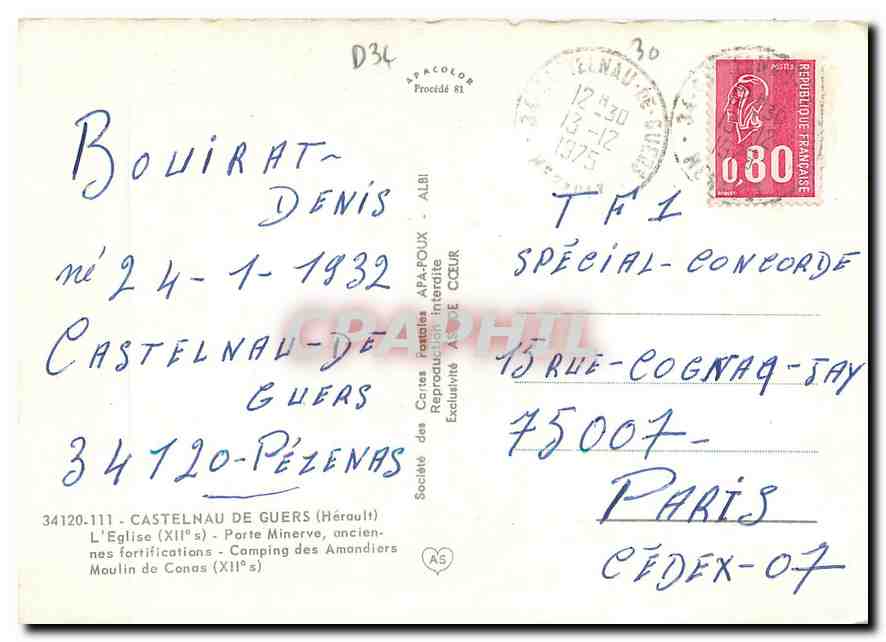 D34
30
APACOLOR
Procédé 81
34 - CASTELNAU-DE-GUERS
12 H 30
13 -12
1975
HERAULT
POSTES
REPUBLIQUE FRANÇAISE
0,80
BOUIRAT-
DENIS
né 24-1-1932
CASTELNAU-DE
GUERS
34120-PÉZENAS
34120-111 - CASTELNAU DE GUERS (Hérault)
L'Eglise (XII° s) - Porte Minerve, ancien-
nes fortifications - Camping des Amandiers
Moulin de Conas (XII° s)
Société des Cartes Postales APA-POUX - ALBI
Reproduction interdite
Exclusivité AS DE CŒUR
AS
CPAPHIL
TF1
SPÉCIAL-CONCORDE
15 RUE-COGNAQ-JAY
75007-
PARIS
CÉDEX-07